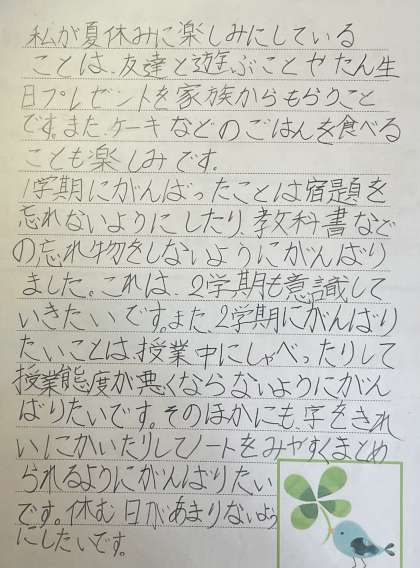 私が夏休みに楽しみにしている
ことは、友達と遊ぶことやたん生
日プレゼントを家族からもらうこと
です。また、ケーキなどのごはんを食べる
ことも楽しみです。
1学期にがんばったことは宿題を
忘れないようにしたり、教科書など
の忘れ物をしないようにがんばり
ました。これは、2学期も意識して
いきたいです。また、2学期にがんばり
たいことは、授業中にしゃべったりして
授業態度が悪くならないようにがん
ばりたいです。そのほかにも、字をきれ
いにかいたりしてノートをみやすくまとめ
られるようにがんばりたい
です。休む日があまりないよう
にしたいです。